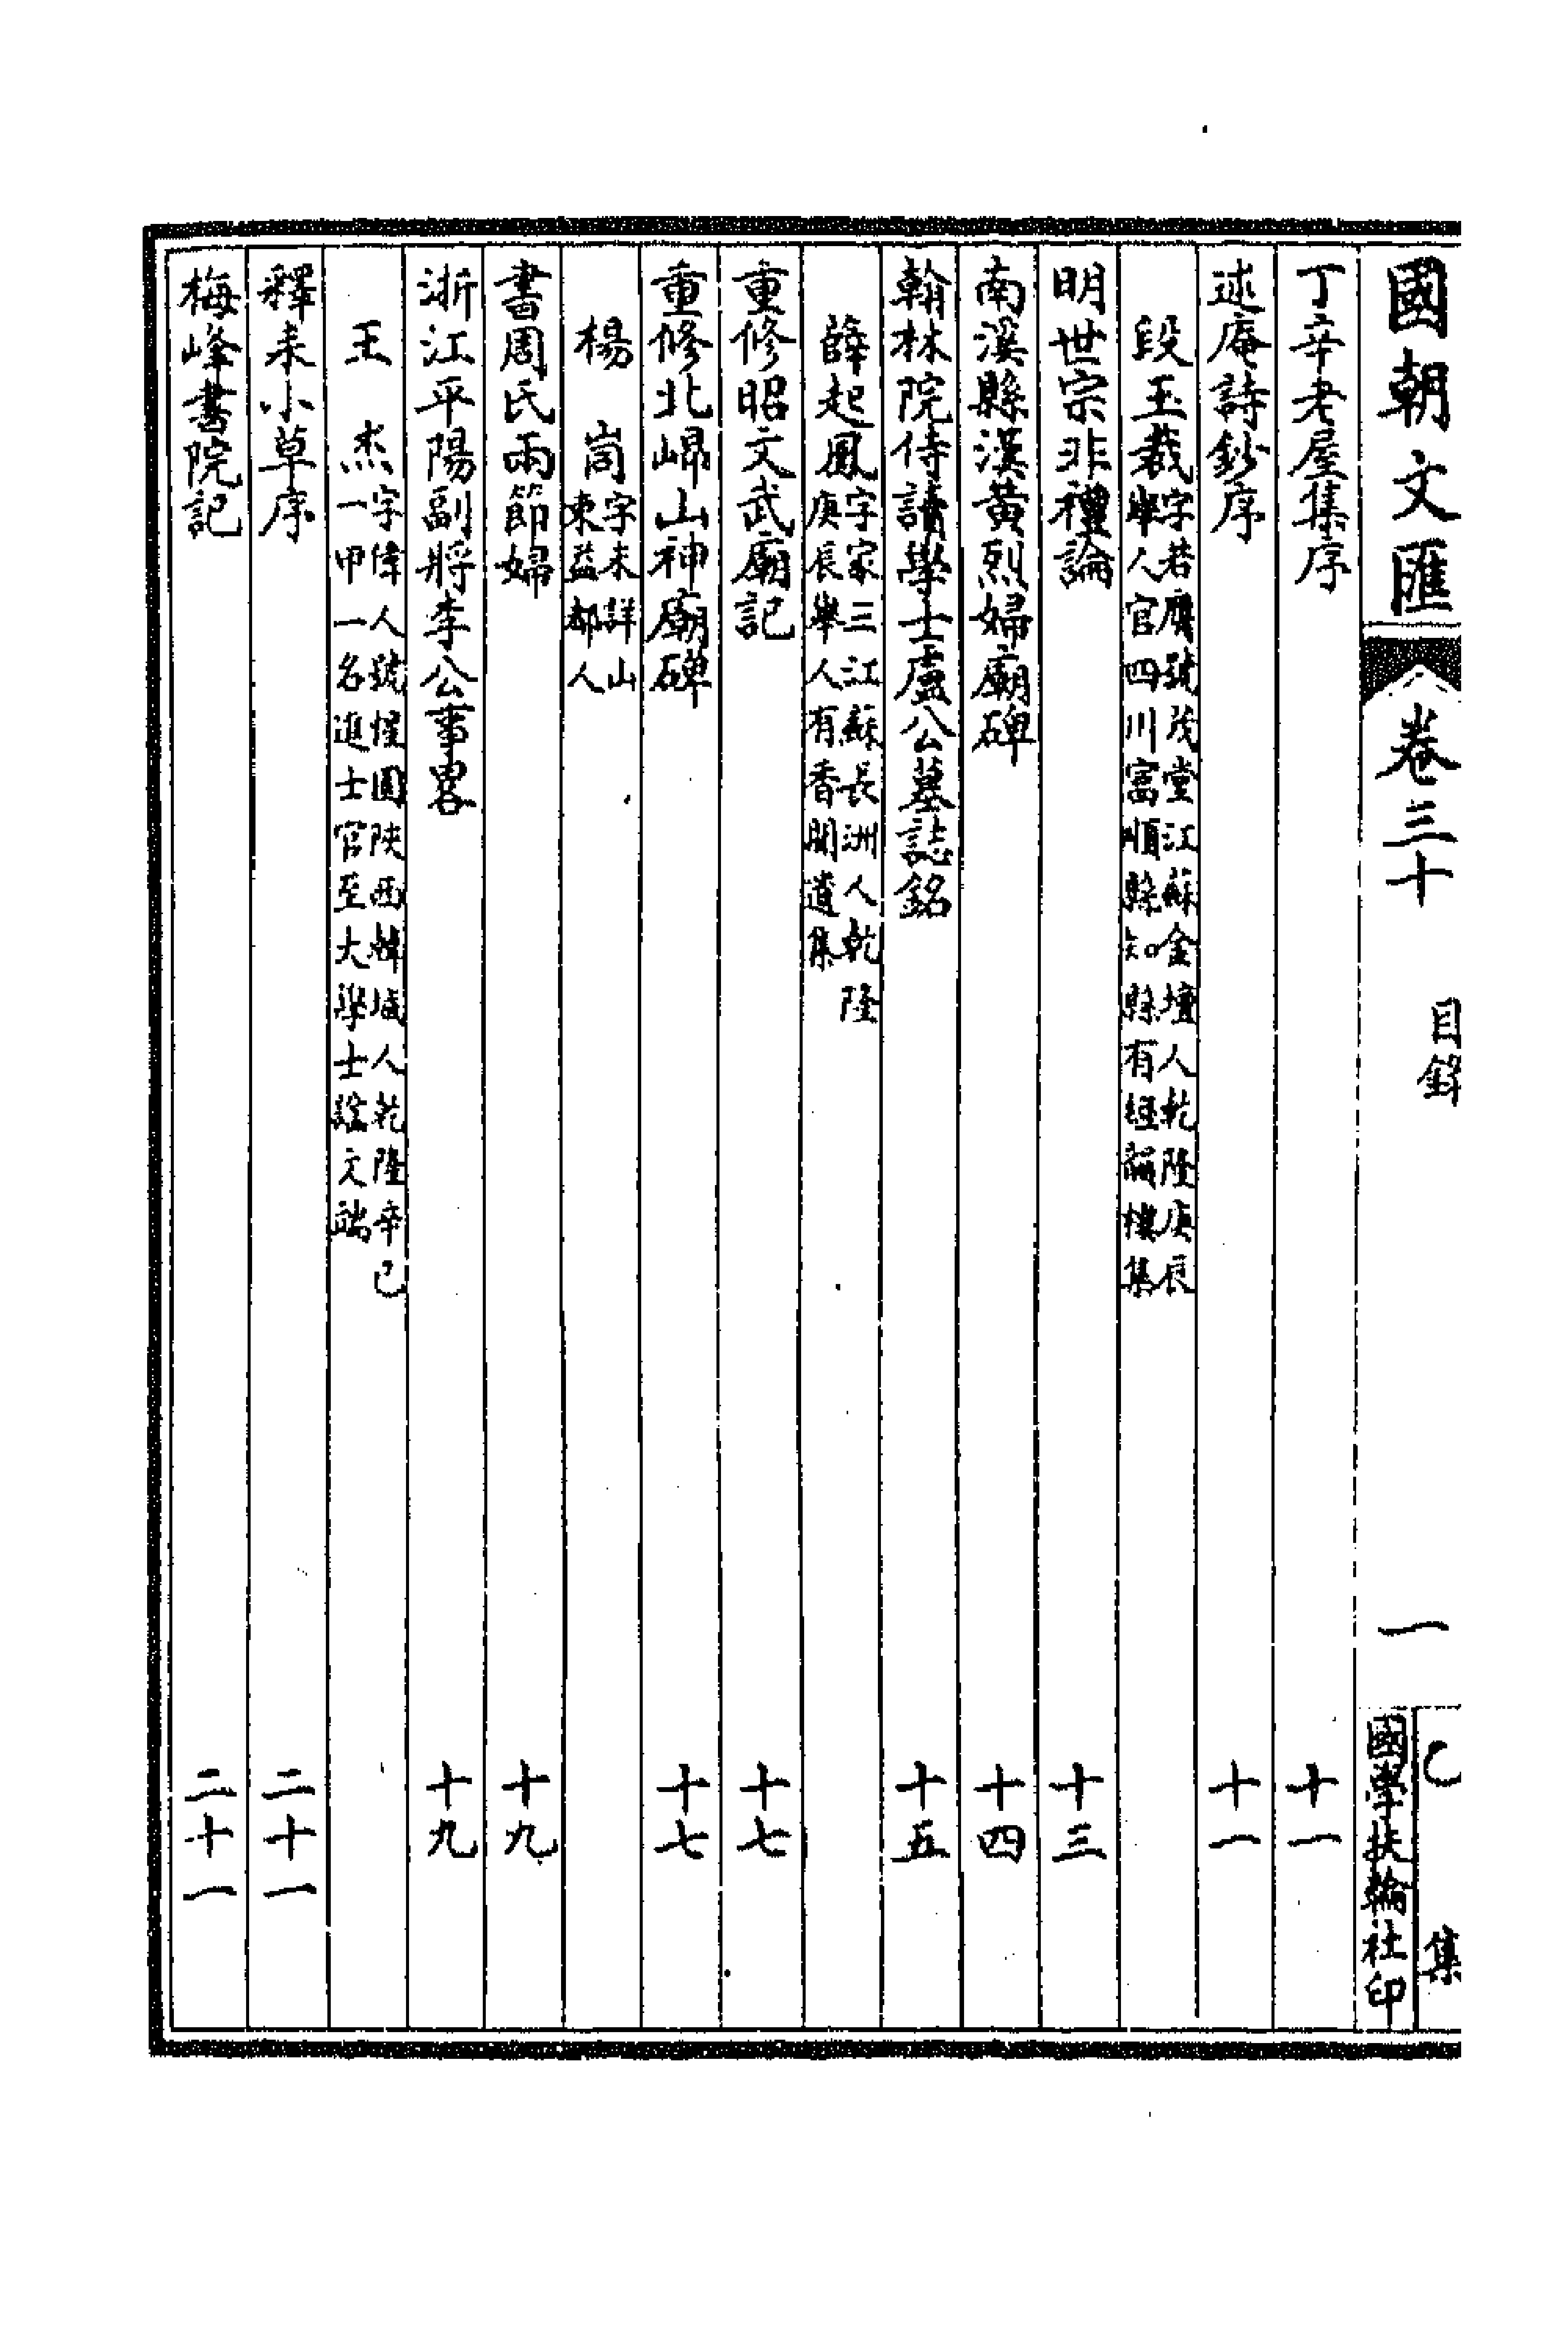 國朝文匯 卷三十 目錄 一 乙集 國學扶輪社印
丁辛老屋集序 十一
述庵詩鈔序 十一
段玉裁 字若膺號茂堂江蘇金壇人乾隆庚辰
舉人官四川富順縣知縣有經韻樓集
明世宗非禮論 十三
南溪縣漢黃烈婦廟碑 十四
翰林院侍讀學士盧公墓誌銘 十五
薛起鳳 字家三江蘇長洲人乾隆
庚辰舉人有香聞遺集
重修昭文武廟記 十七
重修北㟓山神廟碑 十七
楊 峒 字未詳山
東益都人
書周氏兩節婦 十九
浙江平陽副將李公事畧 十九
王 杰 字偉人號惺園陝西韓城人乾隆辛巳
一甲一名進士官至大學士諡文端
釋耒小草序 二十一
梅峰書院記 二十一